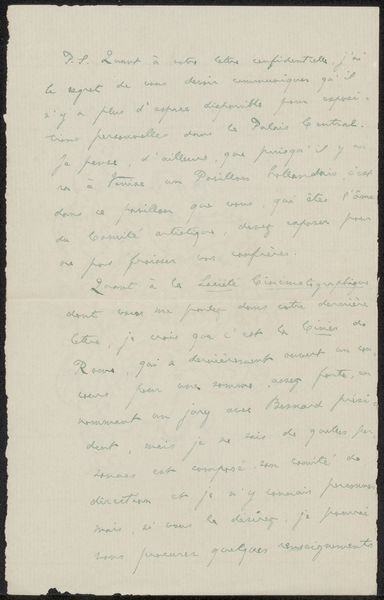 P.S. Quant à votre lettre confidentielle, j'ai
le regret de vous devoir communiquer qu'il
n'y a plus d'espace disponible pour exposi-
tions personnelles dans le Palais Central.
Je pense, d'ailleurs, que puisqu'il y au-
ra à Venise un Pavillon hollandais, c'est
dans ce pavillon que vous, qui êtes l'âme
du Comité artistique, devez exposer pour
ne pas froisser vos confrères.
Quant à la Société Cinématographique
dont vous me parlez dans votre dernière
lettre, je crois que c'est la Cines de
Rome, qui a dernièrement ouvert un con-
cours pour une somme assez forte, en
nommant un jury avec Besnard prési-
dent, mais je ne sais de quelles per
sonnes est composé son comité de
direction et je n'y connais personne
mais, si vous le désirez, je pourrai
vous procurer quelques renseignements